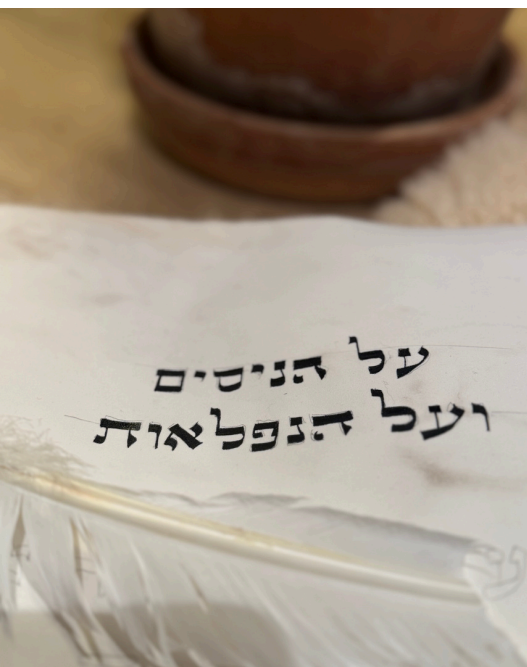 על הניסים
ועל הנפלאות